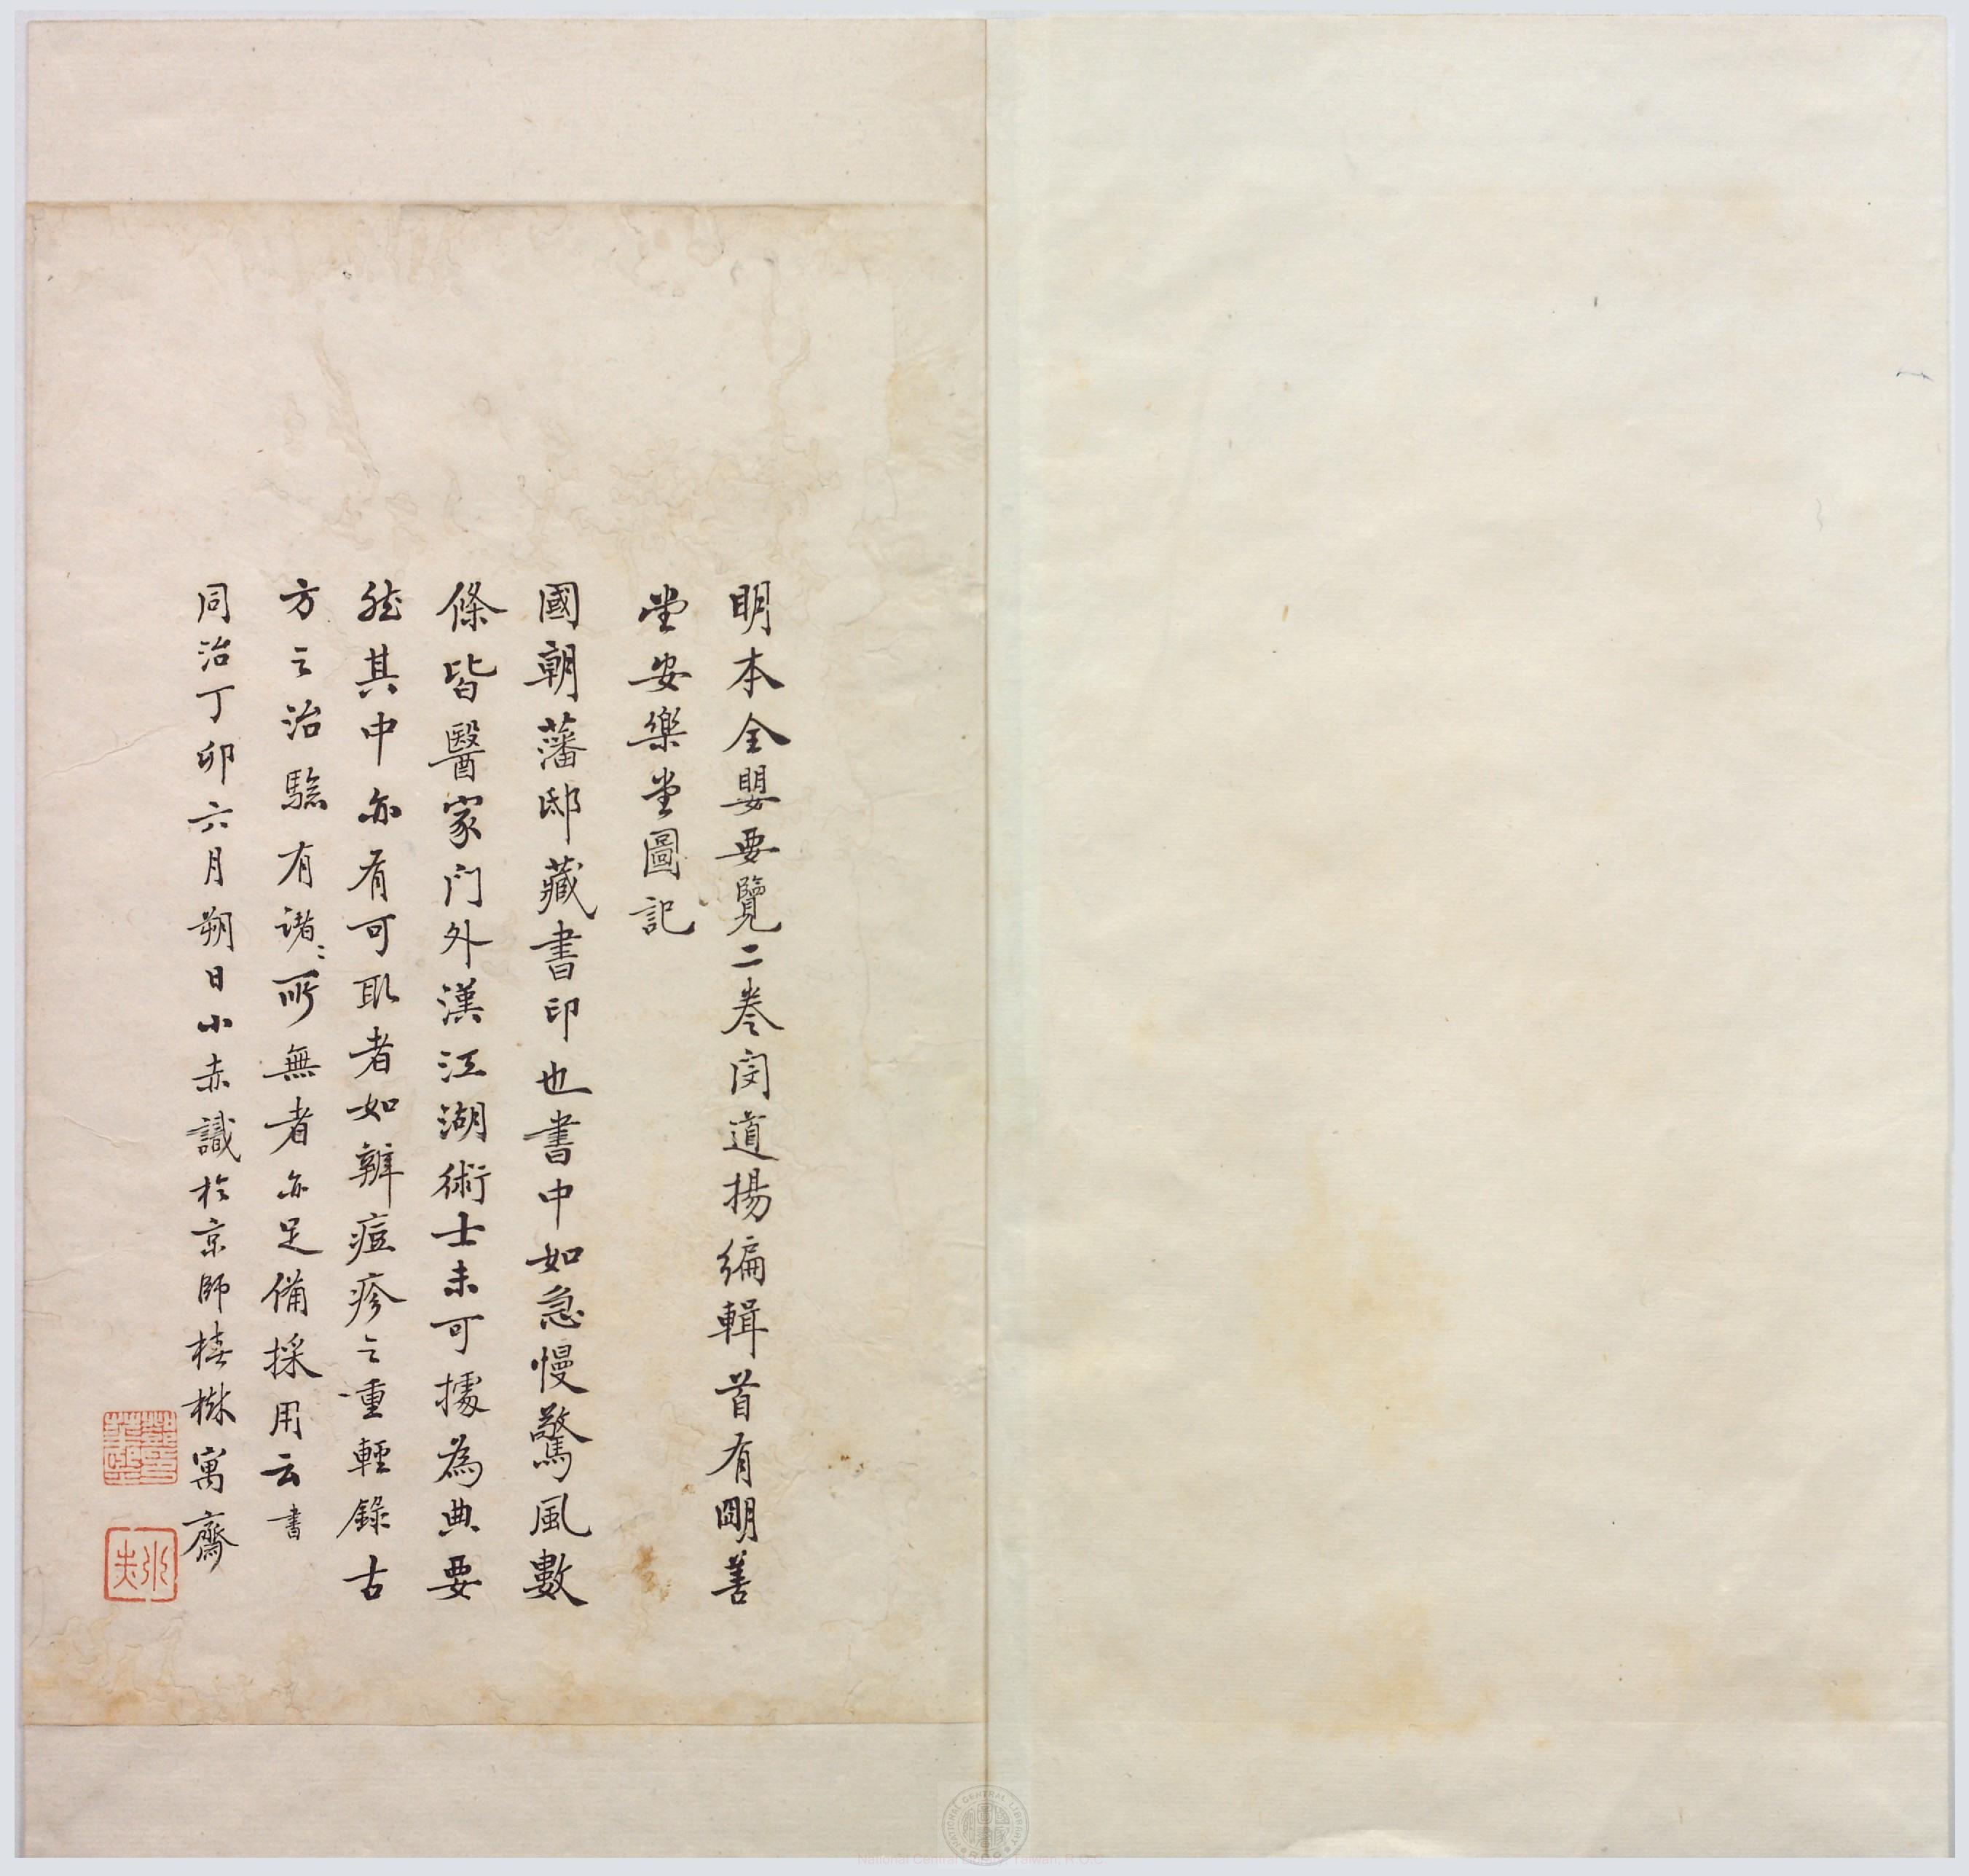 明本全嬰要覽二卷閔道揚編輯首有明善
堂安樂堂圖記
國朝藩邸藏書印也書中如急慢驚風數
條皆醫家門外漢江湖術士未可據為典要
然其中亦有可取者如辨痘疹之重輕錄古
方之治驗有諸書所無者亦足備採用云
同治丁卯六月朔日小赤識於京師椿樹寓齋
National Central Library, Taiwan, R.O.C